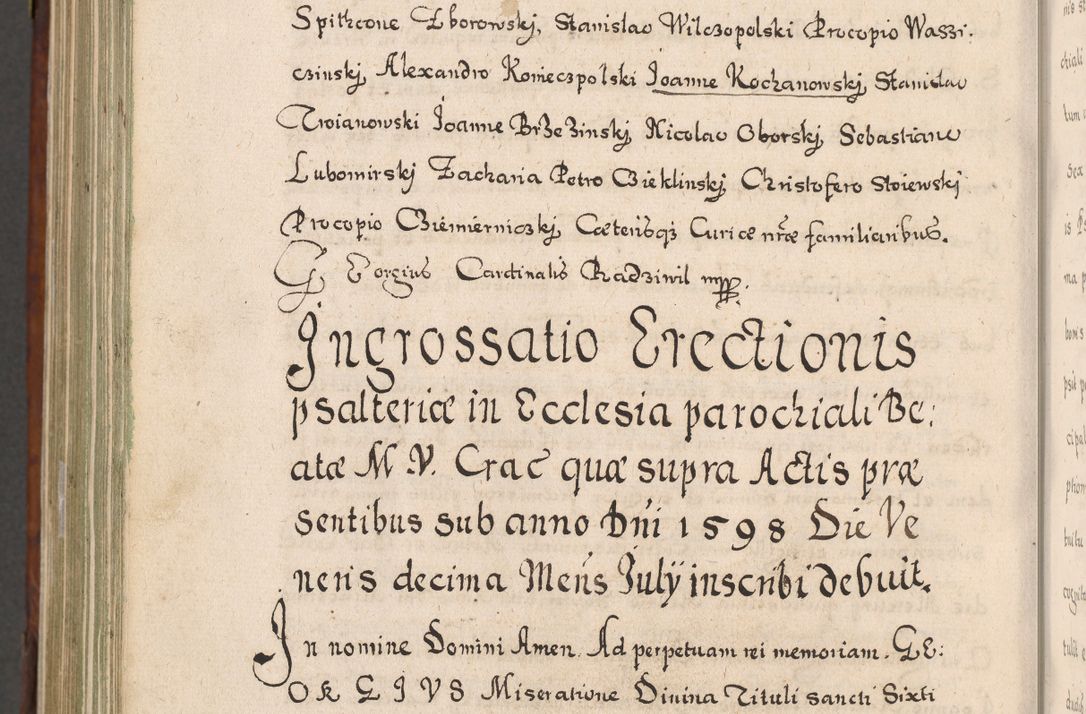 Spitkone Zborowskj, Stanislao Wilczopolski Procopio Waszi.
czinskj, Alexandro Konieczpolski Joanne Kochanowskj, Stanislao
Troianowski Joanne Brzezinskj, Nicolao Oborskj, Sebastiano
Lubomirskj Zacharia Petro Czieklinskj Christofero Stoiewskj
Procopio Cziemierniczkj, Cæterisqz Curiæ nræ familiaribus.
Georgius Cardinalis Radziwil mpp.
Ingrossatio Erectionis
psalteriæ in Ecclesia parochiali Be:
atæ M V. Crac quæ supra Actis præ
sentibus sub anno Dni 1598 Die Ve
neris decima Mens July inscribi debuit.
In nomine Domini Amen. Ad perpetuam rei memoriam. GE:
ORGIVS Miseratione Divina Tituli sancti Sixti